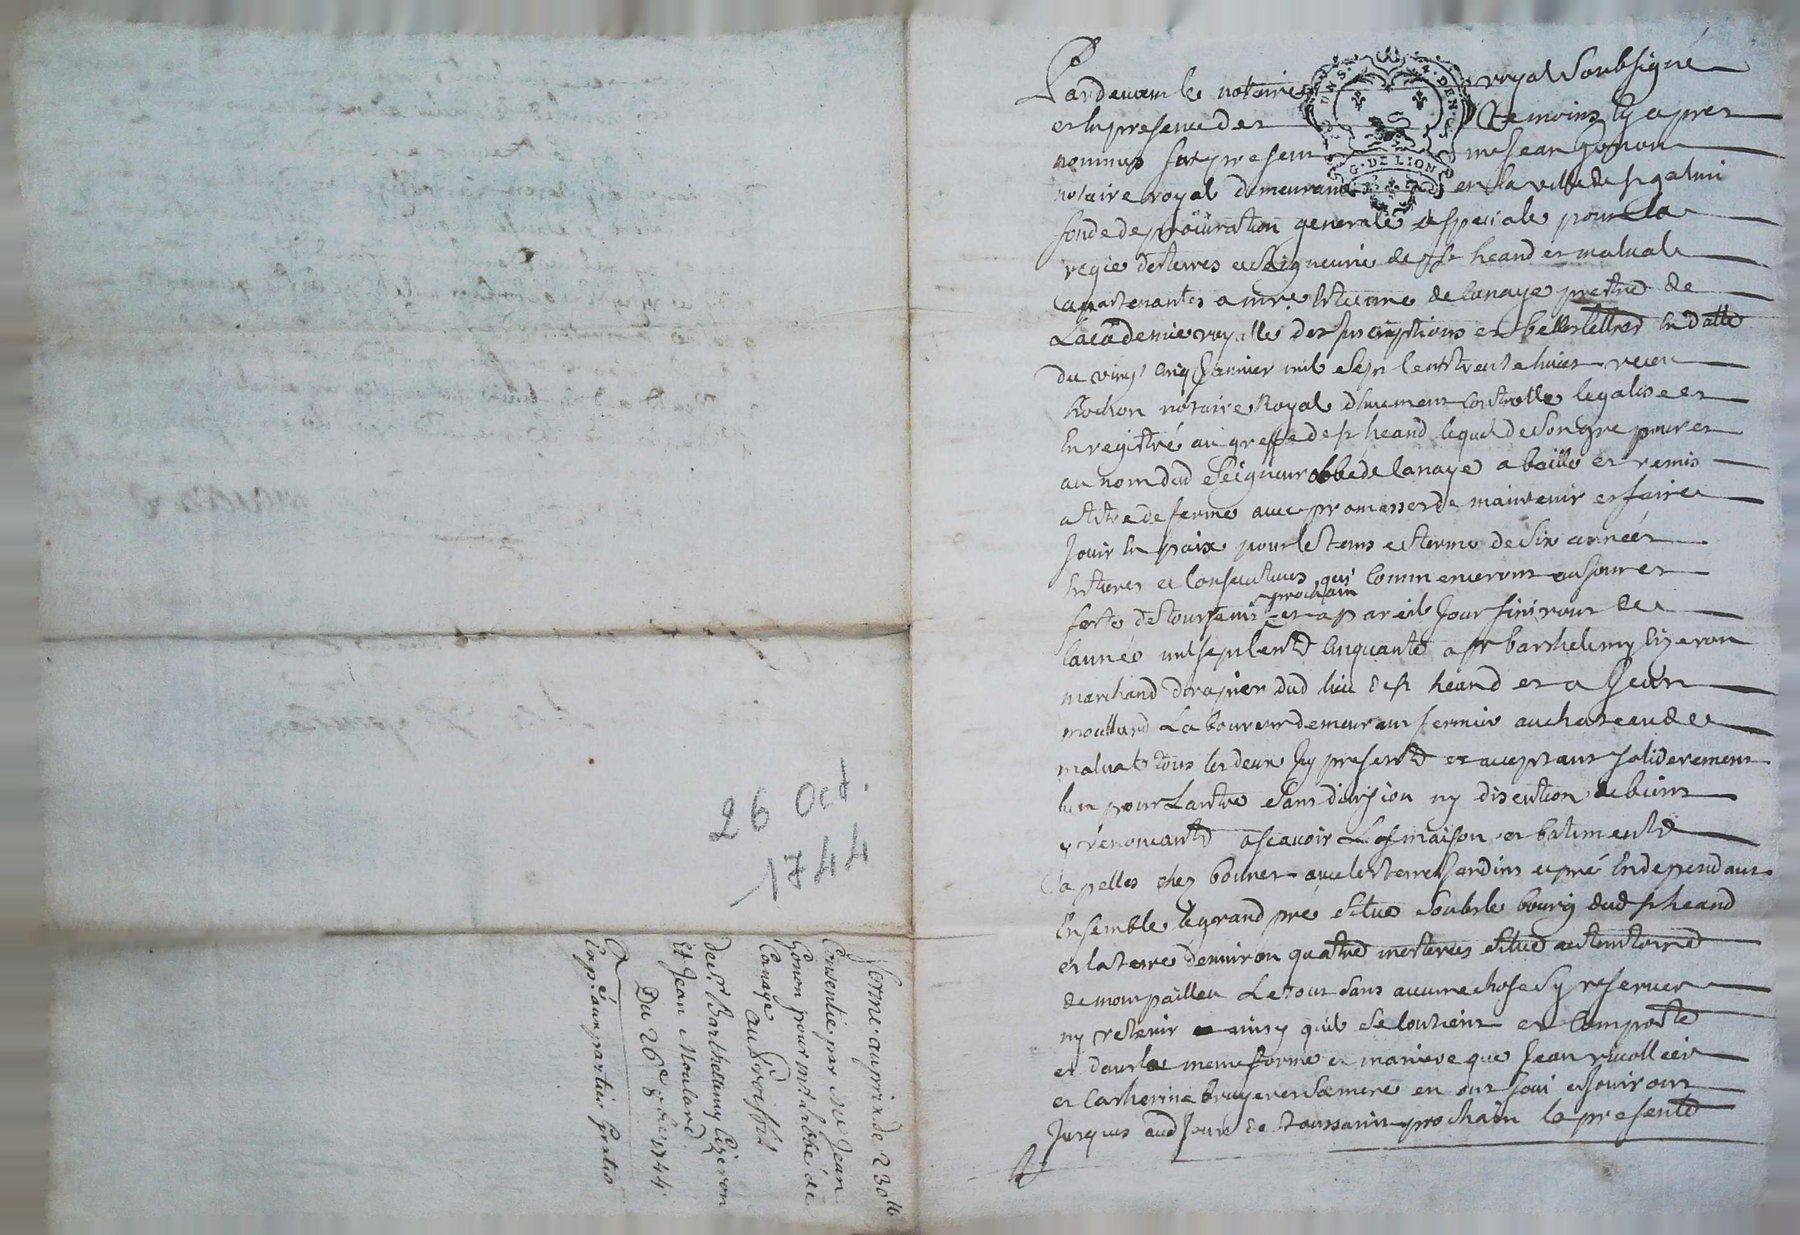 26 Oct.
1744
Ferme au prix de 230 ₶
Consentie par Me Jean
Gonon pour mr Labbé de
Canaye au proffit
de sr Barthellemy Cizeron
Et Jean Moulard
Du 26e 8bre 1744
Exp.é aux parties
Pardevant le notaire royal Soubsigné
et en presence des temoins cy apres
nommes fut present me Jean Gonon
notaire royal demeurant en la ville de st galmi
fondé de procuration generale et specialle pour la
regie des terres et seigneurie de st heand et malval
apartenantes a mre Etienne de Canaye prestre de
Lacademie royalle des Inscriptions et belles lettres En datte
du vingt cinq Janvier mil sept cent trente huict receu
Rochon notaire Royal dhument controlle legalisee et
Enregistré au greffe de st heand lequel de son gre pour et
au nom dud Seigneur abbé de Canaye a baillé et remis
a titre de ferme avec promesses de maintenir et faire
Jouir En paix pour le tems et terme de Six années
Entieres et Consecutives qui Commenceront au Jour et
feste de toussaint prochain et a pareil Jour finiront de
lannée mil sept cent Cinquante a sr barthelemy Cizeron
marchand drapier dud lieu de st heand et a Jean
moullard Laboureur demeurant fermier au chateau de
malval tous les deux Icy presents et acceptant solidairement
lun pour Lautre Sans division ny discution de biens
y renoncants ascavoir Les maison et batiments
apelles chez bonnet avec les terres Jardins et pré En dependant
Ensemble le grand pré Situé Soubs le bourg dud st heand
et la terre denviron quatre mesterées Situé au territoire
de mompailleu Le tout sans aucune chose Sy reserver
ny retenir ainsy quil Se Contient et Comporte
et dans la meme forme et maniere que Jean
et Catherine bruyere Sa mere en ont Joui et Jouiront
Jusques aud Jour de toussaint prochain le presente